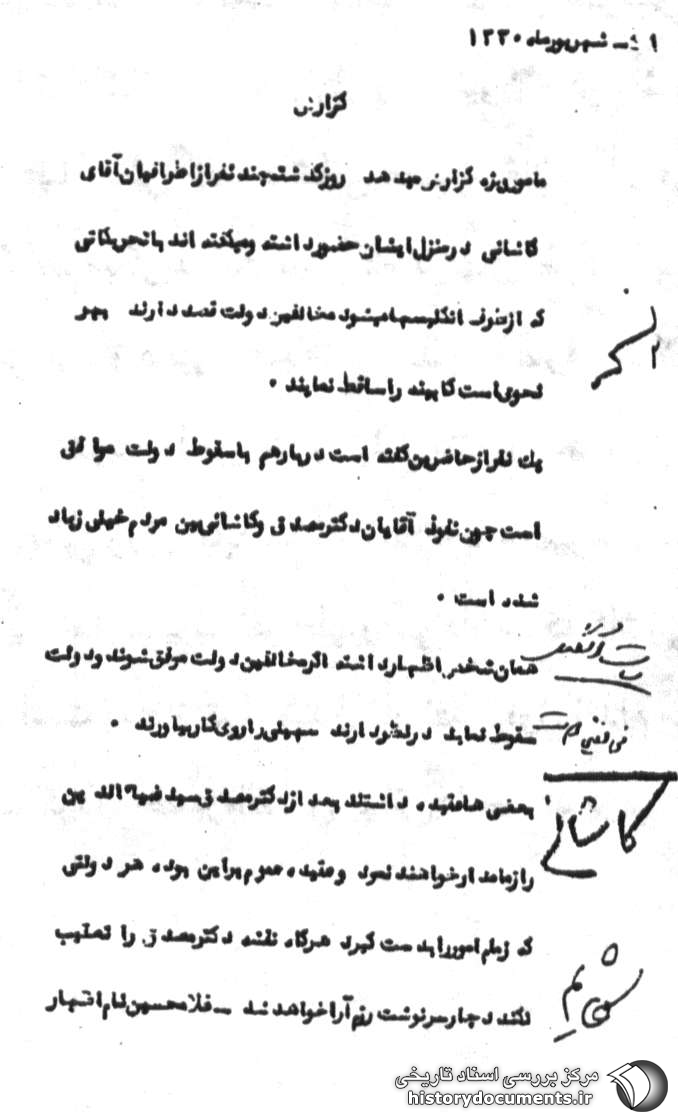 شهریورماه ۱۳۳۰
گزارش
مامور ویژه گزارش میدهد روز گذشته چند نفر از اطرافیان آقای
کاشانی در منزل ایشان حضور داشته و میگفته اند با تحریکاتی
که از طرف انگلیسها میشود مخالفین دولت قصد دارند بهر
نحوی است کابینه را ساقط نمایند .
یک نفر از حاضرین گفته است دربار هم با سقوط دولت موافق
است چون نفوذ آقایان دکتر مصدق و کاشانی بین مردم خیلی زیاد
شده است .
همان شخص اظهار داشته اگر مخالفین دولت موفق شوند و دولت
سقوط نماید در نظر دارند سهیلی را روی کار بیاورند .
بعضی ها عقیده داشتند بعد از دکتر مصدق سید ضیاء الدین
را زمامدار خواهند نمود و عقیده عموم براین بوده هر دولتی
که زمام امور را بدست گیرد هرگاه نقشه دکتر مصدق را تعقیب
نکند دچار سرنوشت رزم آرا خواهد شد – غلامحسین نام اظهار
کاشانی
مرکز بررسی اسناد تاریخی
historydocuments.ir